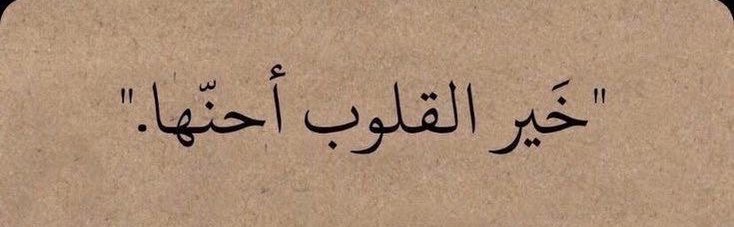 "خَير القلوب أحنّها."